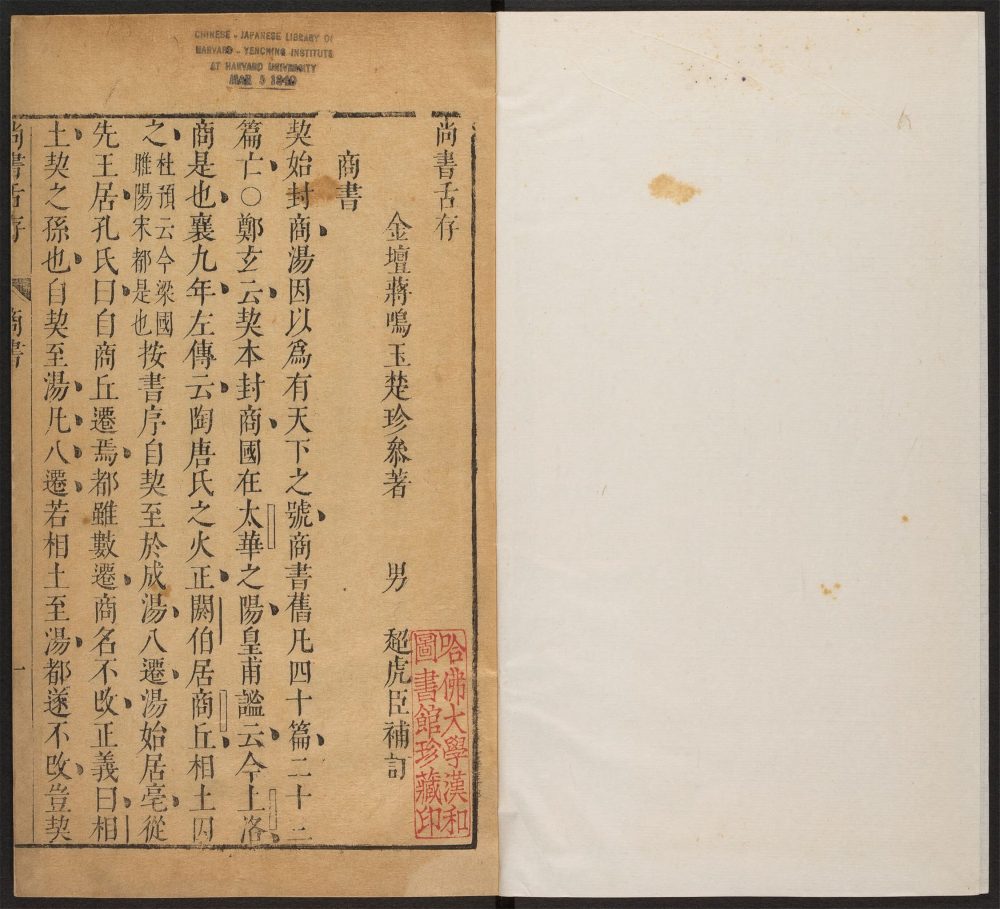 CHINESE - JAPANESE LIBRARY OF
HARVARD - YENCHING INSTITUTE
AT HARVARD UNIVERSITY
MAR 5 1940
尚書舌存
金壇蔣鳴玉楚珍叅著 男 超虎臣補訂
商書
契始封商湯因以爲有天下之號商書舊凡四十篇二十三
篇亡○鄭玄云契本封商國在太華之陽皇甫謐云今上洛
商是也襄九年左傳云陶唐氏之火正閼伯居商丘相土因
之杜預云今梁國睢陽宋都是也按書序自契至於成湯八遷湯始居亳從
先王居孔氏曰自商丘遷焉都雖數遷商名不改正義曰相
土契之孫也自契至湯凡八遷若相土至湯都遂不改豈契
尚書舌存 商書 一
哈佛大學漢和
圖書館珍藏印